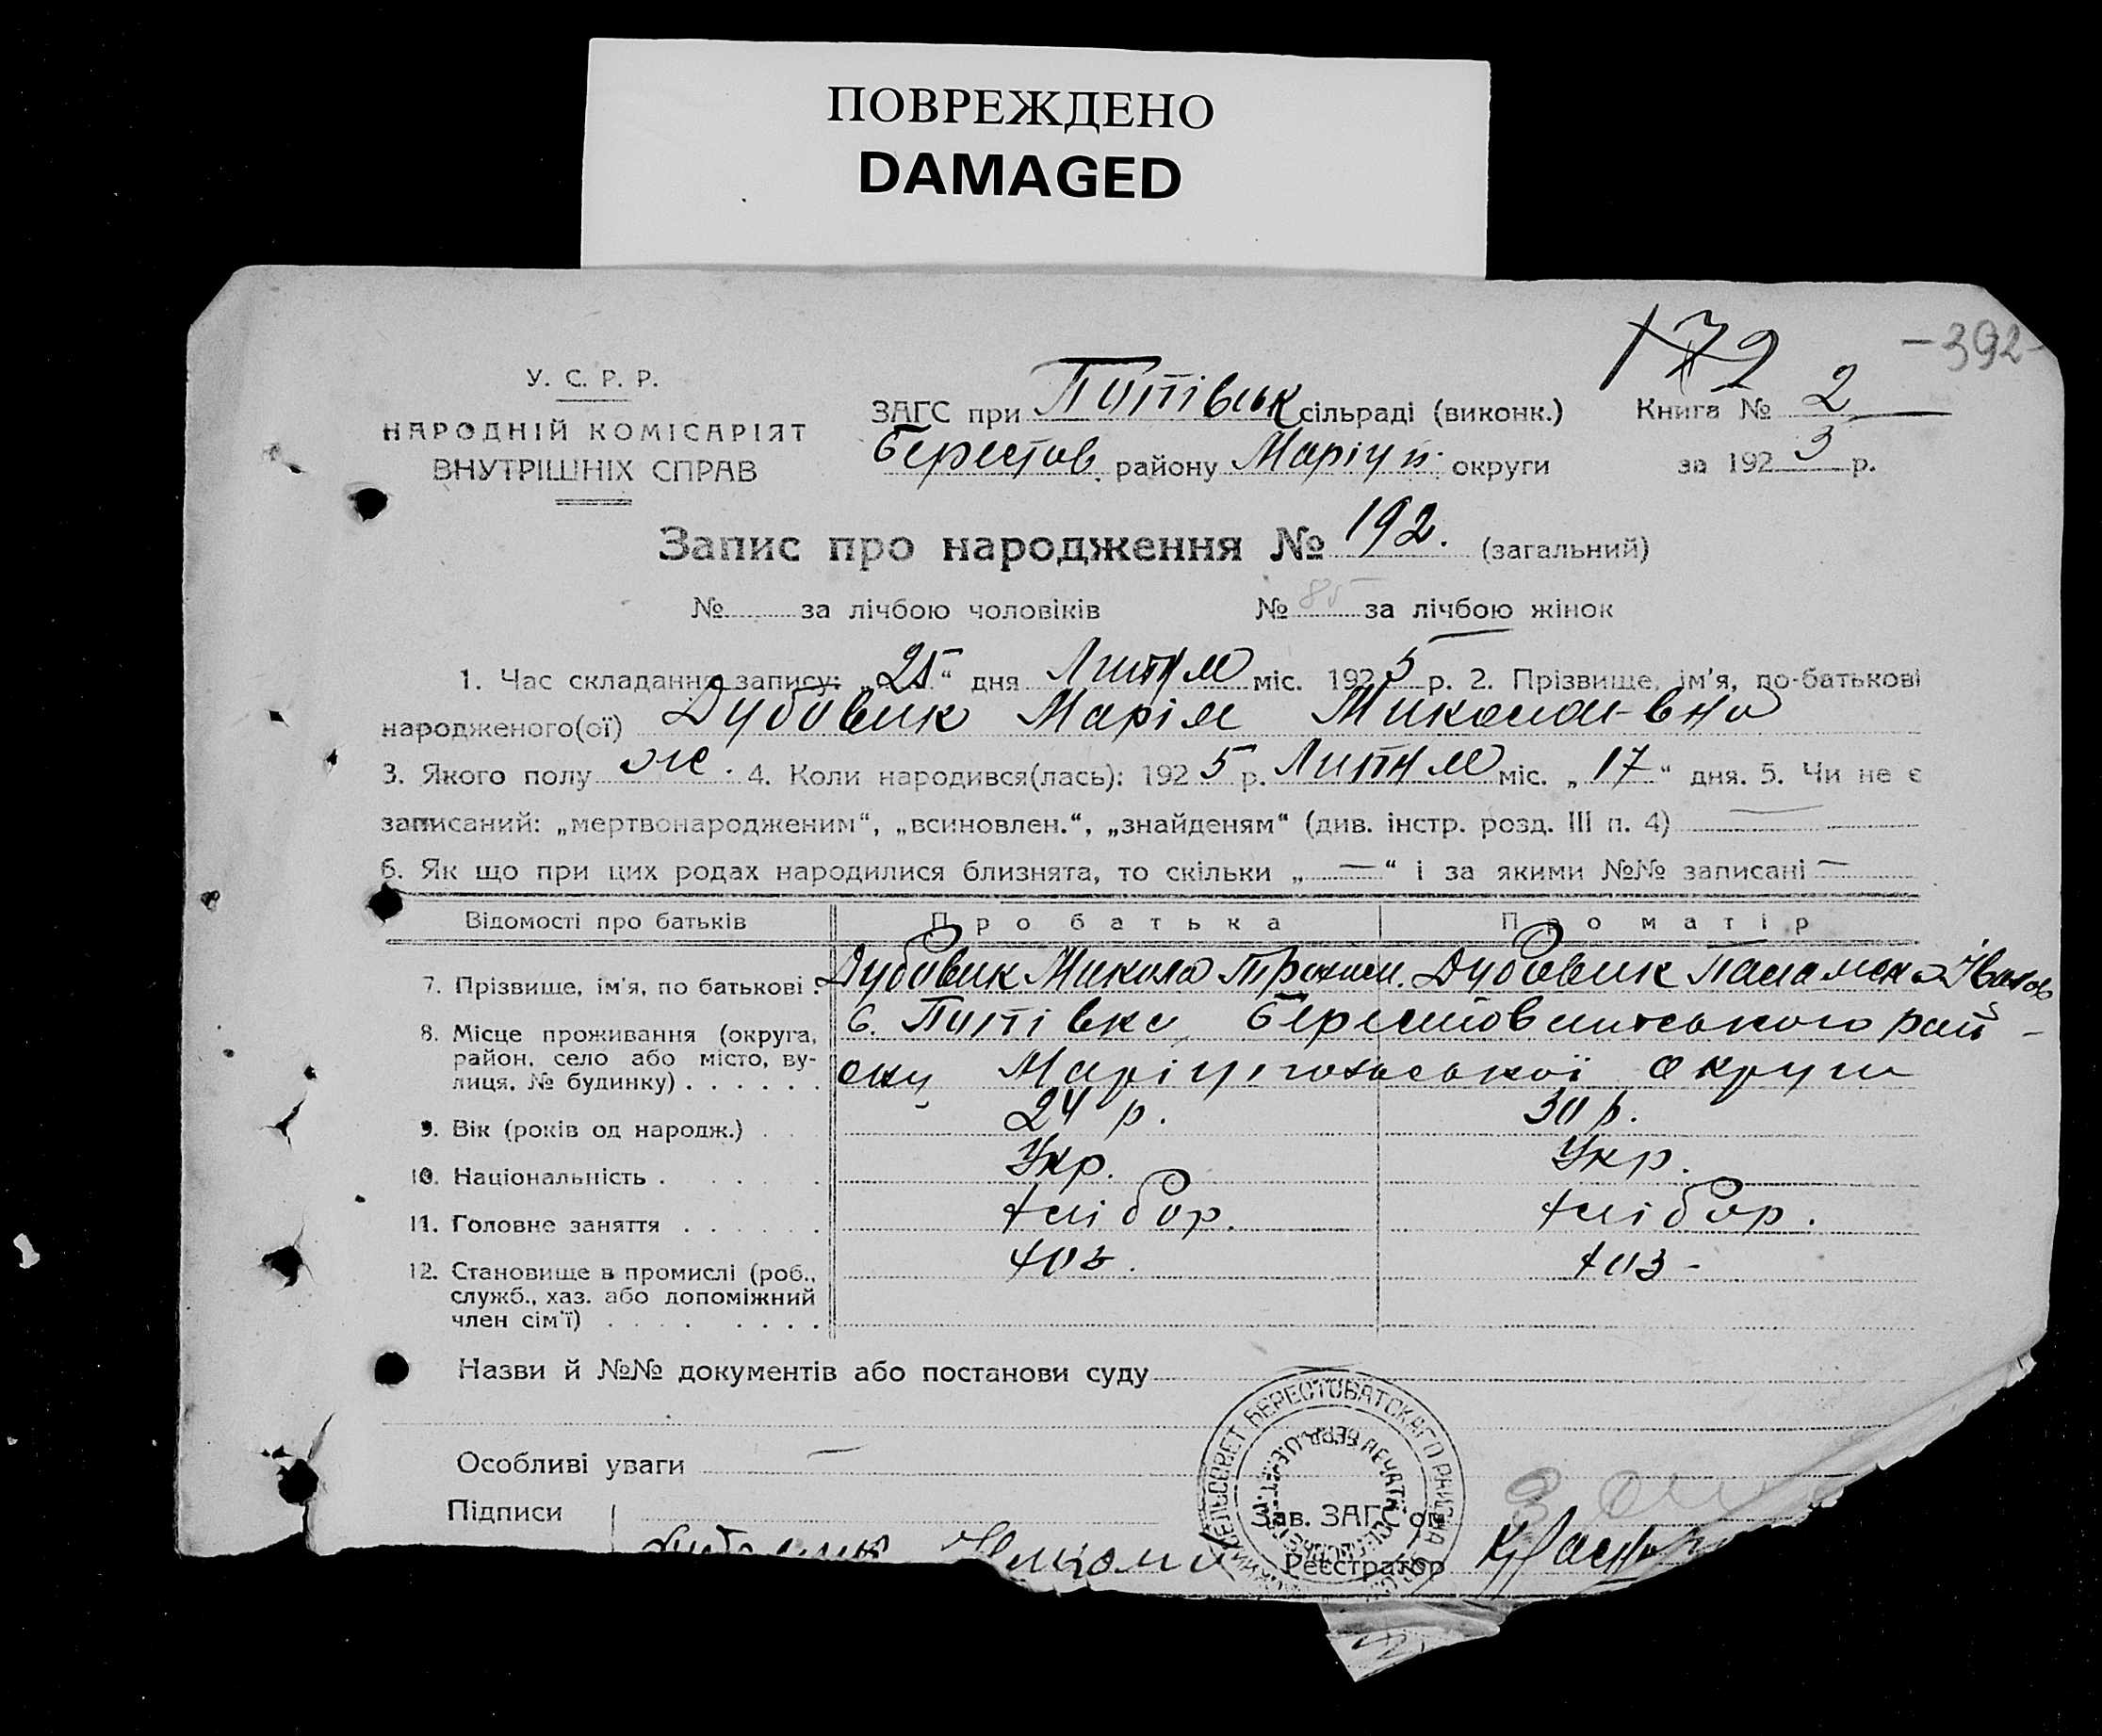 ПОВРЕЖДЕНО
DAMAGED
172
-392-
У. С. Р. Р.
НАРОДНІЙ КОМІСАРІЯТ
ВНУТРІШНІХ СПРАВ
ЗАГС при Потівськ сільраді (виконк.)
Берестов. району Маріуп. округи
Книга № 2
за 1925 р.
Запис про народження № 192. (загальний)
№ за лічбою чоловіків № 85 за лічбою жінок
1. Час складання запису: „25“ дня Липня міс. 1925 р. 2. Прізвище, ім'я, по-батькові
народженого(ої) Дубовик Марія Микола-вна
3. Якого полу ж. 4. Коли народився(лась): 1925 р. Липня міс. „17“ дня. 5. Чи не є
записаний: „мертвонародженим“, „всиновлен.“, „знайденям“ (див. інстр. розд. III п. 4) —
6. Як що при цих родах народилися близнята, то скільки „—“ і за якими №№ записані —
Відомості про батьків Про батька Про матір
7. Прізвище, ім'я, по батькові . Дубовик Микола Дубовик Іванов
8. Місце проживання (округа,
район, село або місто, ву-
лиця, № будинку) . . . . . .
с. Потівка, Берестоватського рай-
ону Маріупольської округи
9. Вік (років од народж.) . . . 24 р. 30 р.
10. Національність . . . . . Укр. Укр.
11. Головне заняття . . . . . хлібор. хлібор.
12. Становище в промислі (роб.,
служб., хаз. або допоміжний
член сім'ї) . . . . . . . .
хоз. хоз-
Назви й №№ документів або постанови суду
Особливі уваги —
Підписи
Зав. ЗАГС'ом
Реєстратор